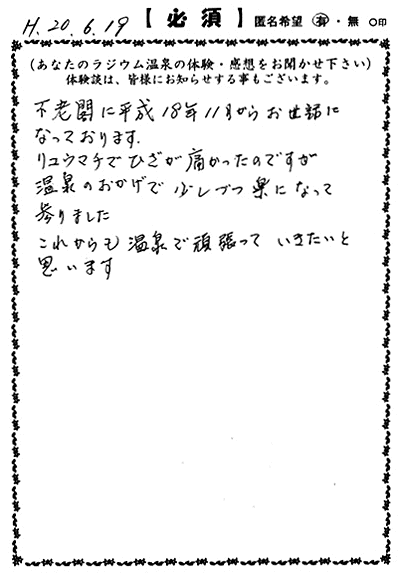 H.20.6.19 【必須】 匿名希望 有・無 ○印
(あなたのラジウム温泉の体験・感想をお聞かせ下さい)
体験談は、皆様にお知らせする事もございます。
不老閣に平成18年11月からお世話に
なっております.
リュウマチでひざが痛かったのですが
温泉のおかげで少しづつ楽になって
参りました
これからも温泉で頑張っていきたいと
思います